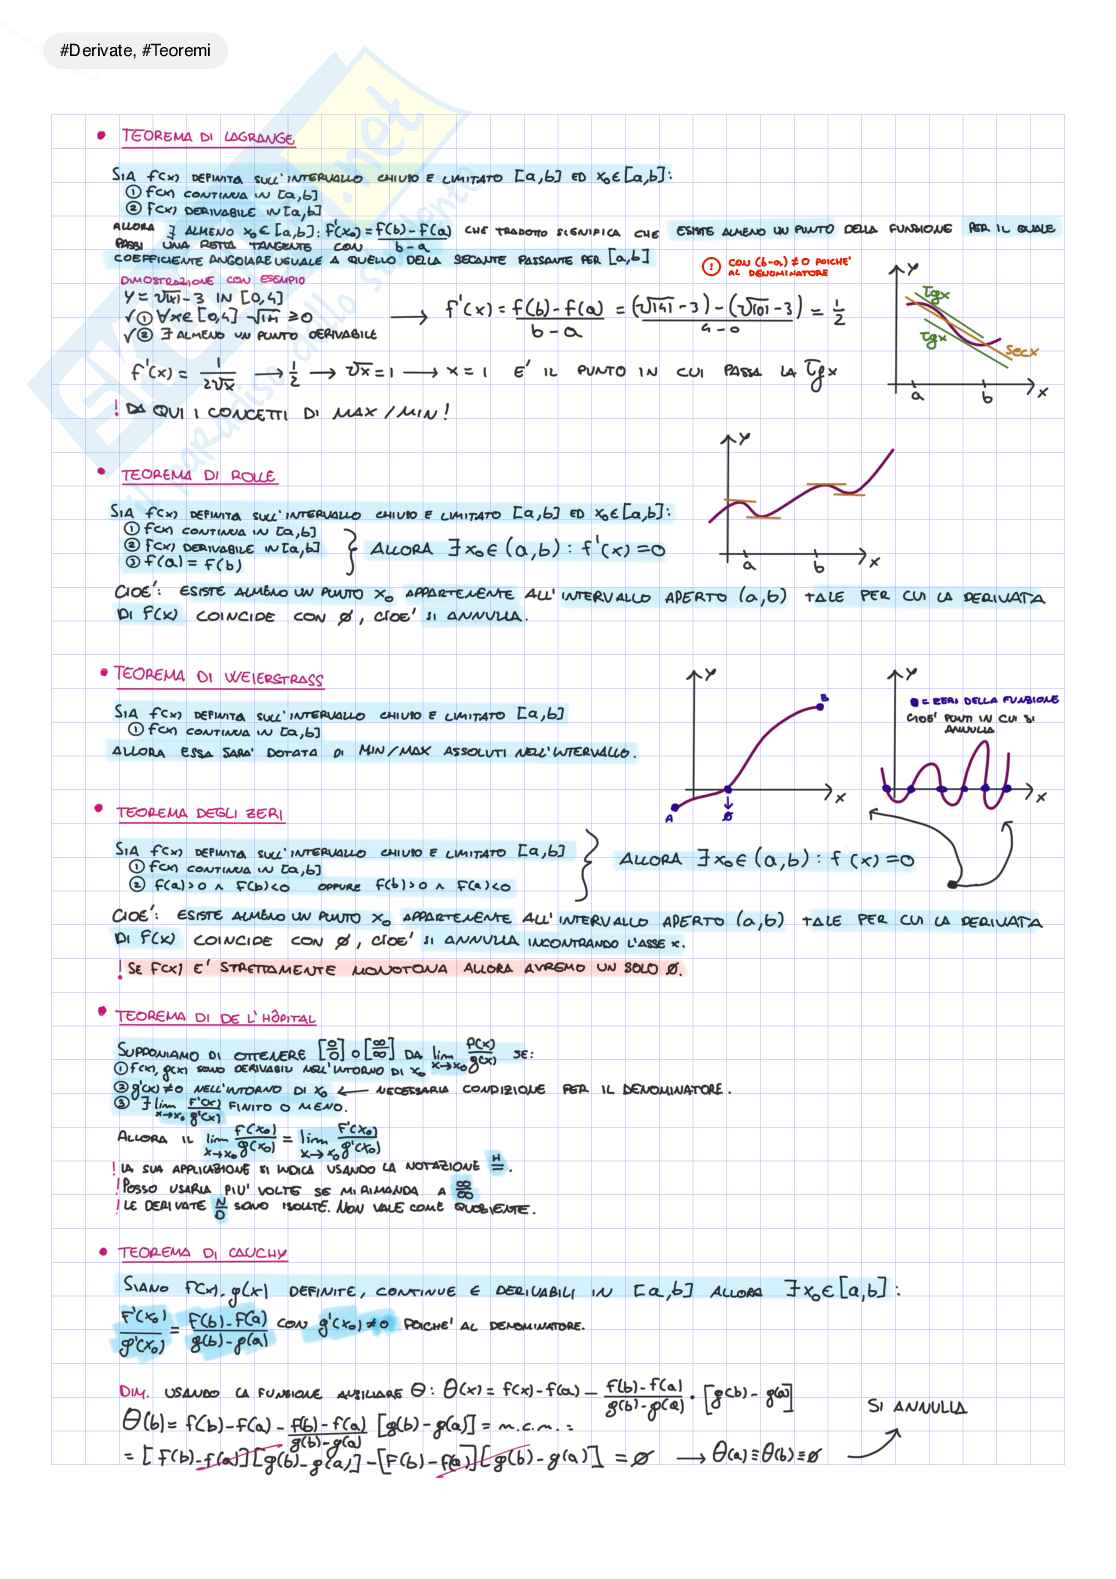 #Derivate, #Teoremi
• TEOREMA DI LAGRANGE
SIA f(x) DEFINITA SULL'INTERVALLO CHIUSO E LIMITATO [a,b] ED x₀∈[a,b]:
① f(x) CONTINUA IN [a,b]
② f(x) DERIVABILE IN [a,b]
ALLORA ∃ ALMENO x₀∈[a,b]: f'(x₀) = f(b)-f(a) / b-a CHE TRADOTTO SIGNIFICA CHE ESISTE ALMENO UN PUNTO DELLA FUNZIONE PER IL QUALE
PASSI UNA RETTA TANGENTE CON
COEFFICIENTE ANGOLARE UGUALE A QUELLO DELLA SECANTE PASSANTE PER [a,b]
! CON (b-a) ≠ 0 POICHE'
AL DENOMINATORE
DIMOSTRAZIONE CON ESEMPIO
Y = √|x| - 3 IN [0,4]
✓① ∀x∈[0,4] √|x| ≥ 0
✓② ∃ ALMENO UN PUNTO DERIVABILE
→ f'(x) = f(b)-f(a) / b-a = (√|4| -3) - (√|0| -3) / 4-0 = 1/2
f'(x) = 1/2√x → 1/2 → √x = 1 → x = 1 E' IL PUNTO IN CUI PASSA LA Tgx
! DA QUI I CONCETTI DI MAX/MIN!
y
Tgx
Tgx
secx
a
b
x
• TEOREMA DI ROLLE
SIA f(x) DEFINITA SULL'INTERVALLO CHIUSO E LIMITATO [a,b] ED x₀∈[a,b]:
① f(x) CONTINUA IN [a,b]
② f(x) DERIVABILE IN [a,b]
③ f(a) = f(b)
} ALLORA ∃ x₀∈(a,b): f'(x) = 0
y
a
b
x
CIOE': ESISTE ALMENO UN PUNTO x₀ APPARTENENTE ALL'INTERVALLO APERTO (a,b) TALE PER CUI LA DERIVATA
DI f(x) COINCIDE CON Ø, CIOE' SI ANNULLA.
• TEOREMA DI WEIERSTRASS
SIA f(x) DEFINITA SULL'INTERVALLO CHIUSO E LIMITATO [a,b]
① f(x) CONTINUA IN [a,b]
ALLORA ESSA SARA' DOTATA DI MIN/MAX ASSOLUTI NELL'INTERVALLO.
y
B
A
Ø
x
y
● = ZERI DELLA FUNZIONE
CIOE' PUNTI IN CUI SI
ANNULLA
x
• TEOREMA DEGLI ZERI
SIA f(x) DEFINITA SULL'INTERVALLO CHIUSO E LIMITATO [a,b]
① f(x) CONTINUA IN [a,b]
② f(a)>0 ∧ f(b)<0 OPPURE f(b)>0 ∧ f(a)<0
} ALLORA ∃ x₀∈(a,b): f(x) = 0
CIOE': ESISTE ALMENO UN PUNTO x₀ APPARTENENTE ALL'INTERVALLO APERTO (a,b) TALE PER CUI LA DERIVATA
DI f(x) COINCIDE CON Ø, CIOE' SI ANNULLA INCONTRANDO L'ASSE x.
! SE f(x) E' STRETTAMENTE MONOTONA ALLORA AVREMO UN SOLO Ø.
• TEOREMA DI DE L'HÔPITAL
SUPPONIAMO DI OTTENERE [0/0] O [∞/∞] DA lim x→x₀ f(x)/g(x) SE:
① f(x), g(x) SONO DERIVABILI NELL'INTORNO DI x₀
② g'(x) ≠ 0 NELL'INTORNO DI x₀ ← NECESSARIA CONDIZIONE PER IL DENOMINATORE.
③ ∃ lim x→x₀ f'(x)/g'(x) FINITO O MENO.
ALLORA IL lim x→x₀ f(x₀)/g(x₀) = lim x→x₀ f'(x₀)/g'(x₀)
! LA SUA APPLICAZIONE SI INDICA USANDO LA NOTAZIONE H/=.
! POSSO USARLA PIU' VOLTE SE MI RIMANDA A ∞/∞
! LE DERIVATE N/D SONO ISOLATE. NON VALE COME QUOZIENTE.
• TEOREMA DI CAUCHY
SIANO f(x), g(x) DEFINITE, CONTINUE E DERIVABILI IN [a,b] ALLORA ∃ x₀∈[a,b]:
f'(x₀)/g'(x₀) = f(b)-f(a) / g(b)-g(a) CON g'(x₀) ≠ 0 POICHE' AL DENOMINATORE.
DIM. USANDO LA FUNZIONE AUSILIARE Θ: Θ(x) = f(x)-f(a) - f(b)-f(a) / g(b)-g(a) · [g(b)-g(a)]
Θ(b) = f(b)-f(a) - f(b)-f(a) / g(b)-g(a) [g(b)-g(a)] = m.c.m. =
= [f(b)-f(a)][g(b)-g(a)] - [f(b)-f(a)][g(b)-g(a)] = Ø → Θ(a) ≡ Θ(b) ≡ Ø
SI ANNULLA